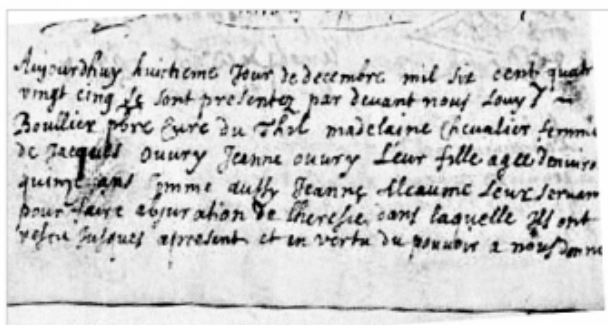 Aujourdhuy huictieme Jour de decembre mil six cent quatr
vingt cinq se sont presentez par devant nous Louys
Boullier pbre Curé du Thil madelaine Chevalier femme
de Jacques Ouvry Jeanne Ouvry Leur fille agee denviro
quinze ans comme aussy Jeanne Aleaume Leur servan
pour faire abjuration de lheresie dans laquelle Ils ont
vescu Jusques apresent et en vertu du pouvoir a nous donne